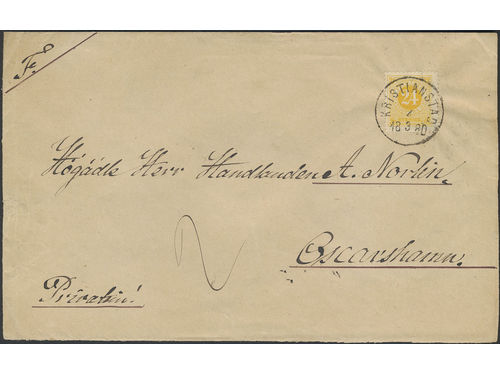 F.
24
KRISTIANSTAD
18 3 80
Högädle Herr Handlanden A. Norlin.
2
Oscarshamn.
Privatim!